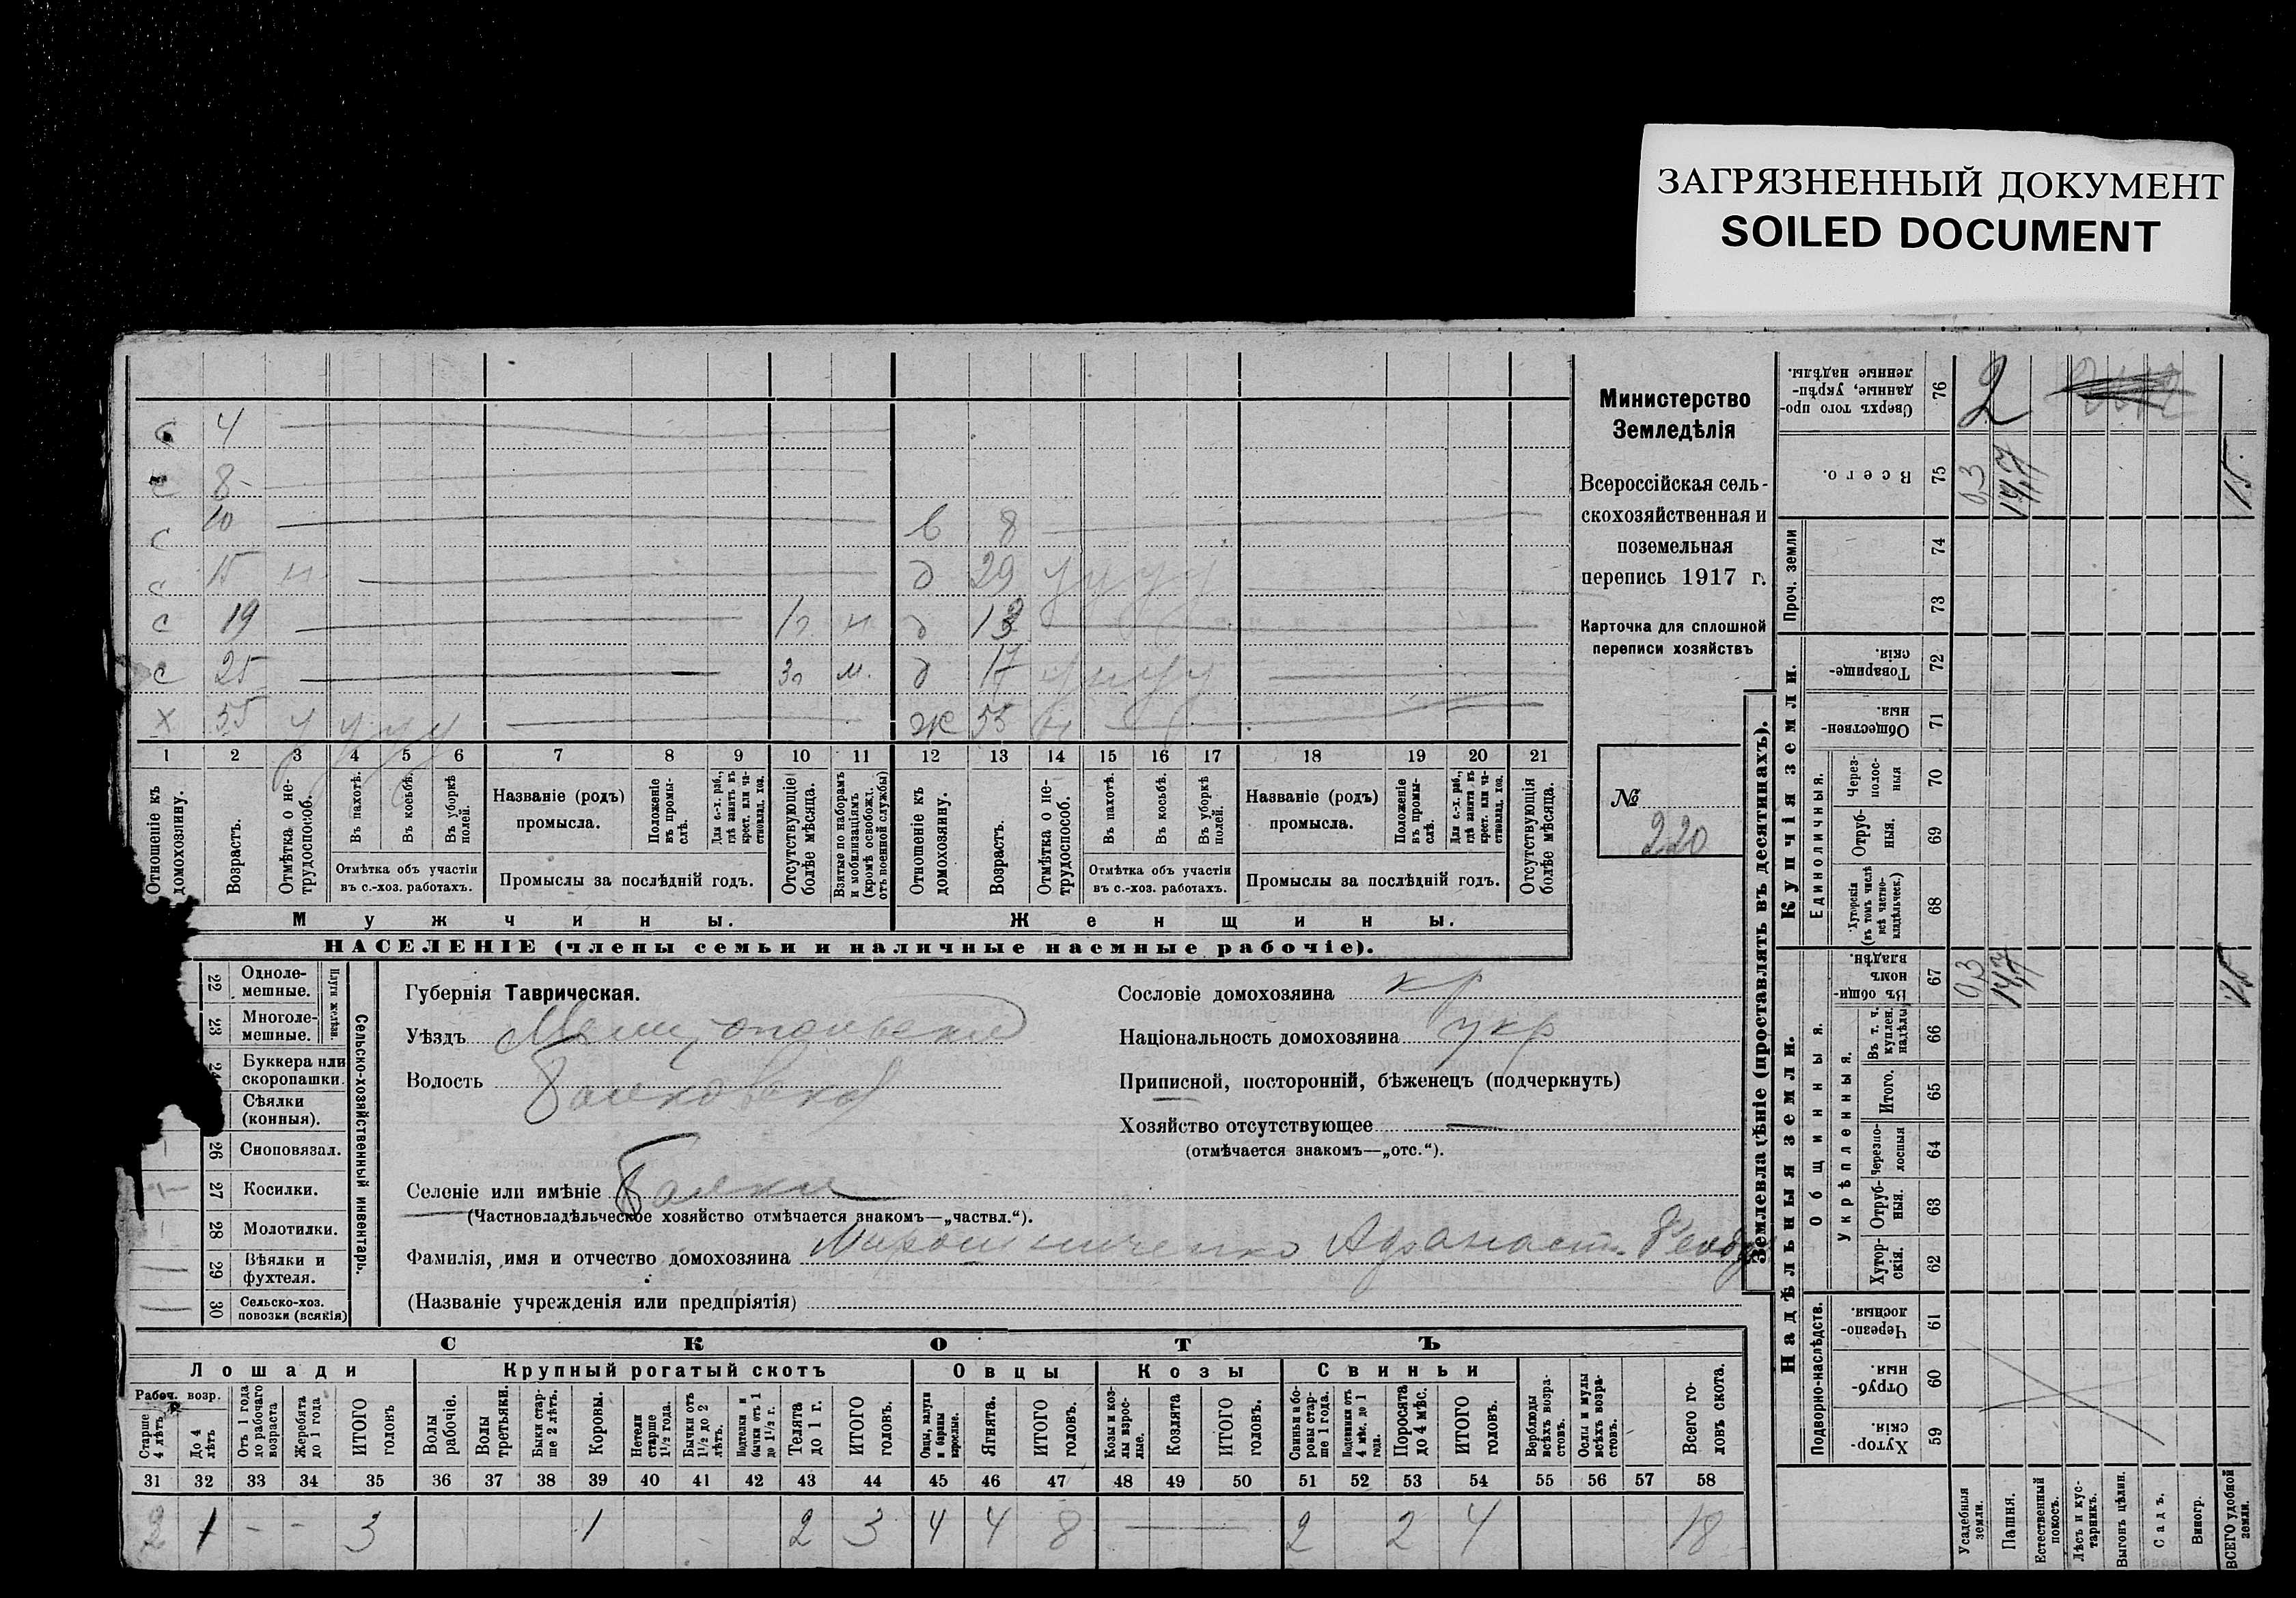 ЗАГРЯЗНЕННЫЙ ДОКУМЕНТ
SOILED DOCUMENT
с 4
с 8
с 10 в 8
с 15 н д 29 у у у у
с 19 1г. н д 13
с 25 3г м. д 17 у у у у
х 55 у у у у ж 55 н
1 2 3 4 5 6 7 8 9 10 11 12 13 14 15 16 17 18 19 20 21
Отношеніе къ домохозяину.
Возрастъ.
Отмѣтка о нетрудоспособ.
Въ пахотѣ.
Въ косьбѣ.
Въ уборкѣ полей.
Отмѣтка объ участіи въ с.-хоз. работахъ.
Названіе (родъ) промысла.
Положеніе въ промыслѣ.
Для с.-х. раб., гдѣ занятъ въ крест. или частновлад. хоз.
Промыслы за послѣдній годъ.
Отсутствующіе болѣе мѣсяца.
Взятые по наборамъ и мобилизаціямъ (кромѣ освобожд. отъ военной службы)
Отношеніе къ домохозяину.
Возрастъ.
Отмѣтка о нетрудоспособ.
Въ пахотѣ.
Въ косьбѣ.
Въ уборкѣ полей.
Отмѣтка объ участіи въ с.-хоз. работахъ.
Названіе (родъ) промысла.
Положеніе въ промыслѣ.
Для с.-х. раб., гдѣ занята въ крест. или частновлад. хоз.
Промыслы за послѣдній годъ.
Отсутствующія болѣе мѣсяца.
Мужчины. Женщины.
НАСЕЛЕНІЕ (члены семьи и наличные наемные рабочіе).
Министерство
Земледѣлія
Всероссійская сель-
скохозяйственная и
поземельная
перепись 1917 г.
Карточка для сплошной
переписи хозяйствъ
№
220
22 Однолемешные.
23 Многолемешные.
Плуги желѣзн.
24 Буккера или скоропашки.
Сѣялки (конныя).
26 Сноповязал.
27 Косилки.
28 Молотилки.
29 Вѣялки и фухтеля.
30 Сельско-хоз. повозки (всякія)
Сельско-хозяйственный инвентарь.
Губернія Таврическая.
Уѣздъ Мелитопольскій
Волость Балковская
Селеніе или имѣніе Балки
(Частновладѣльческое хозяйство отмѣчается знакомъ—„частвл.“).
Фамилія, имя и отчество домохозяина Мирошниченко Афанасій Феод
(Названіе учрежденія или предпріятія)
Сословіе домохозяина кр
Національность домохозяина укр
Приписной, посторонній, бѣженецъ (подчеркнуть)
Хозяйство отсутствующее —
(отмѣчается знакомъ—„отс.“).
СКОТЪ
Лошади Крупный рогатый скотъ Овцы Козы Свиньи
Рабоч. возр.
Старше 4 лѣтъ
До 4 лѣтъ
Отъ 1 года до рабочаго возраста
Жеребята до 1 года
ИТОГО головъ
Волы рабочіе.
Волы третьяки.
Быки старше 2 лѣтъ.
Коровы.
Нетели старше 1½ года.
Бычки отъ 1½ до 2 лѣтъ.
Подтелки и бычки отъ 1 до 1½ г.
Телята до 1 г.
ИТОГО головъ.
Овцы, валухи и бараны взрослые.
Ягнята.
ИТОГО головъ.
Козы и козлы взрослые.
Козлята
ИТОГО головъ.
Свиньи и боровы старше 1 года.
Подсвинки отъ 4 мѣс. до 1 года.
Поросята до 4 мѣс.
ИТОГО головъ.
Верблюды всѣхъ возрастовъ.
Ослы и мулы всѣхъ возрастовъ.
Всего головъ скота.
31 32 33 34 35 36 37 38 39 40 41 42 43 44 45 46 47 48 49 50 51 52 53 54 55 56 57 58
2 1 - - 3 1 2 3 4 4 8 — 2 2 4 18
Землевладѣніе (проставлять въ десятинахъ).
Сверхъ того проданные, укрѣпленные надѣлы. 76 2
Всего. 75 0,3 14,7 15
Проч. земли 74 73
Купчія земли.
Товарищескія. 72
Общественныя. 71
Единоличныя.
Черезполосныя 70
Отрубныя. 69
Хуторскія (въ томъ числѣ всѣ частновладѣльческ.) 68
Надѣльныя земли.
Общинныя.
Въ общиномъ владѣн. 67 0,3 14,7 15
Укрѣпленныя.
Въ т. ч. куплен. надѣлы 66
Итого. 65
Черезполосныя 64
Отрубныя. 63
Хуторскія. 62
Подворно-наслѣдств.
Черезполосныя. 61
Отрубныя. 60
Хуторскія. 59
Усадебныя земли.
Пашня.
Естественный покосъ.
Лѣсъ и кустарникъ.
Выгонъ цѣлин.
Садъ.
Виногр.
ВСЕГО удобной земли.